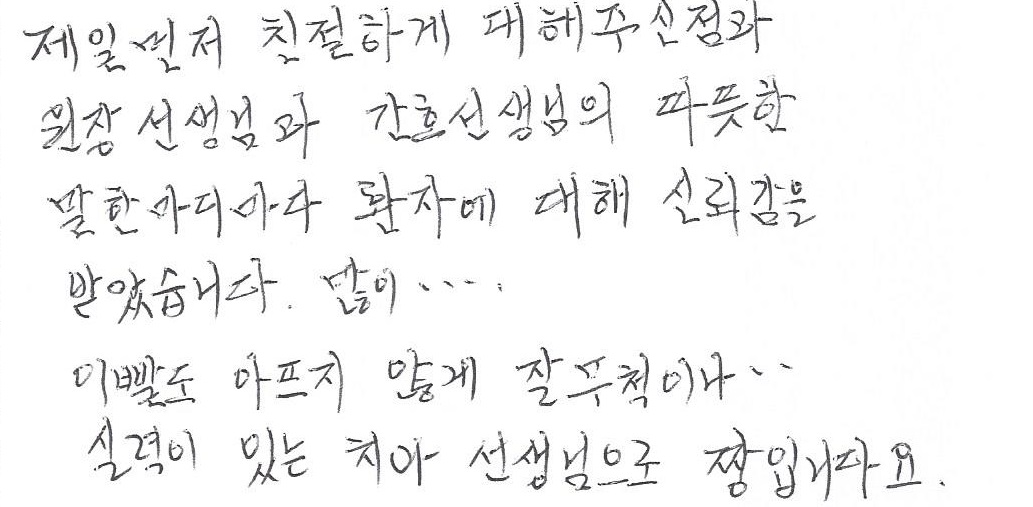 제일먼저 친절하게 대해주신점과
원장선생님과 간호선생님의 따뜻한
말한마디마다 환자에 대해 신뢰감을
받았습니다. 많이....
이빨도 아프지 않게 잘무척이나..
실력이 있는 치아 선생님으로 짱입니다요.